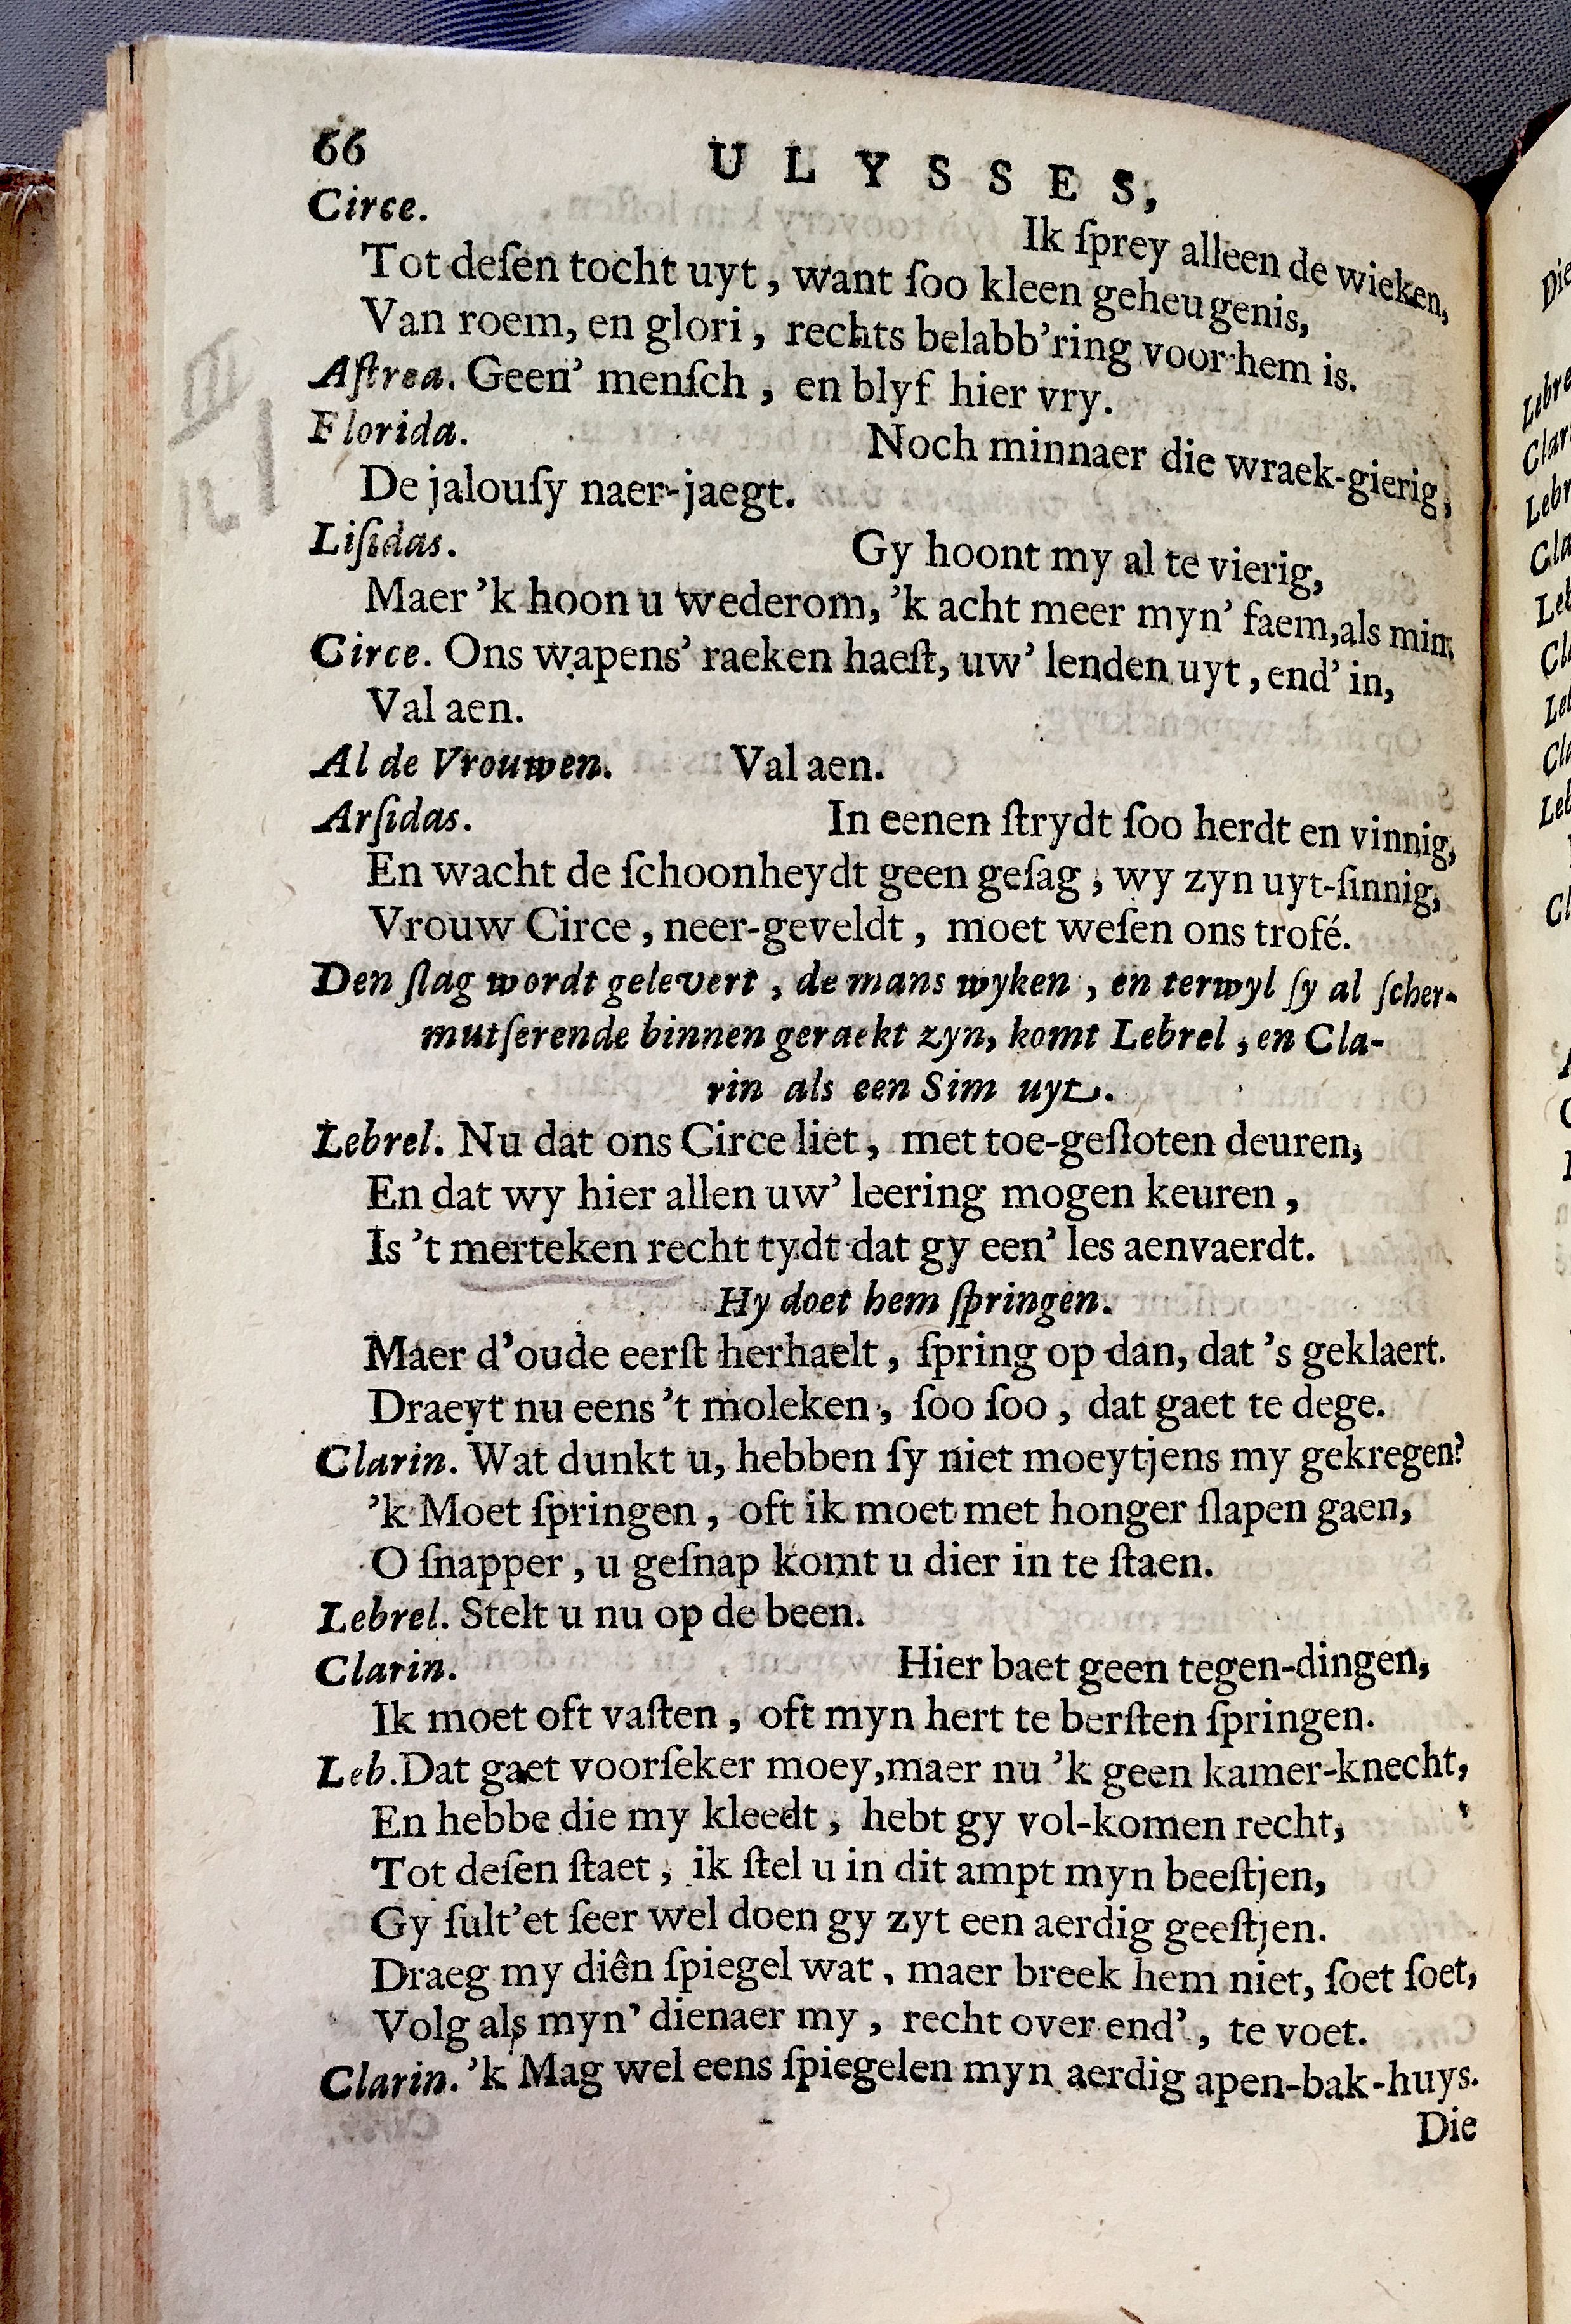 66 ULYSSES,
Circe. Ik ſprey alleen de wieken,
Tot deſen tocht uyt, want ſoo kleen geheugenis,
Van roem, en glori, rechts belabb'ring voor hem is.
Aſtrea. Geen' menſch, en blyf hier vry.
Florida. Noch minnaer die wraek-gierig,
De jalouſy naer-jaegt.
Liſidas. Gy hoont my al te vierig,
Maer 'k hoon u wederom, 'k acht meer myn' faem, als min.
Circe. Ons wapens' raeken haeſt, uw' lenden uyt, end' in,
Val aen.
Al de Vrouwen. Val aen.
Arſidas. In eenen ſtrydt ſoo herdt en vinnig,
En wacht de ſchoonheydt geen geſag, wy zyn uyt-ſinnig,
Vrouw Circe, neer-geveldt, moet weſen ons trofé.
Den ſlag wordt gelevert, de mans wyken, en terwyl ſy al ſcher-
mutſerende binnen geraekt zyn, komt Lebrel, en Cla-
rin als een Sim uyt.
Lebrel. Nu dat ons Circe liet, met toe-geſloten deuren,
En dat wy hier allen uw' leering mogen keuren,
Is 't merteken recht tydt dat gy een' les aenvaerdt.
Hy doet hem ſpringen.
Maer d'oude eerſt herhaelt, ſpring op dan, dat 's geklaert.
Draeyt nu eens 't moleken, ſoo ſoo, dat gaet te dege.
Clarin. Wat dunkt u, hebben ſy niet moeytjens my gekregen?
'k Moet ſpringen, oft ik moet met honger ſlapen gaen,
O ſnapper, u geſnap komt u dier in te ſtaen.
Lebrel. Stelt u nu op de been.
Clarin. Hier baet geen tegen-dingen,
Ik moet oft vaſten, oft myn hert te berſten ſpringen.
Leb. Dat gaet voorſeker moey, maer nu 'k geen kamer-knecht,
En hebbe die my kleedt, hebt gy vol-komen recht,
Tot deſen ſtaet, ik ſtel u in dit ampt myn beeſtjen,
Gy ſult'et ſeer wel doen gy zyt een aerdig geeſtjen.
Draeg my diên ſpiegel wat, maer breek hem niet, ſoet ſoet,
Volg als myn' dienaer my, recht over end', te voet.
Clarin. 'k Mag wel eens ſpiegelen myn aerdig apen-bak-huys.
Die